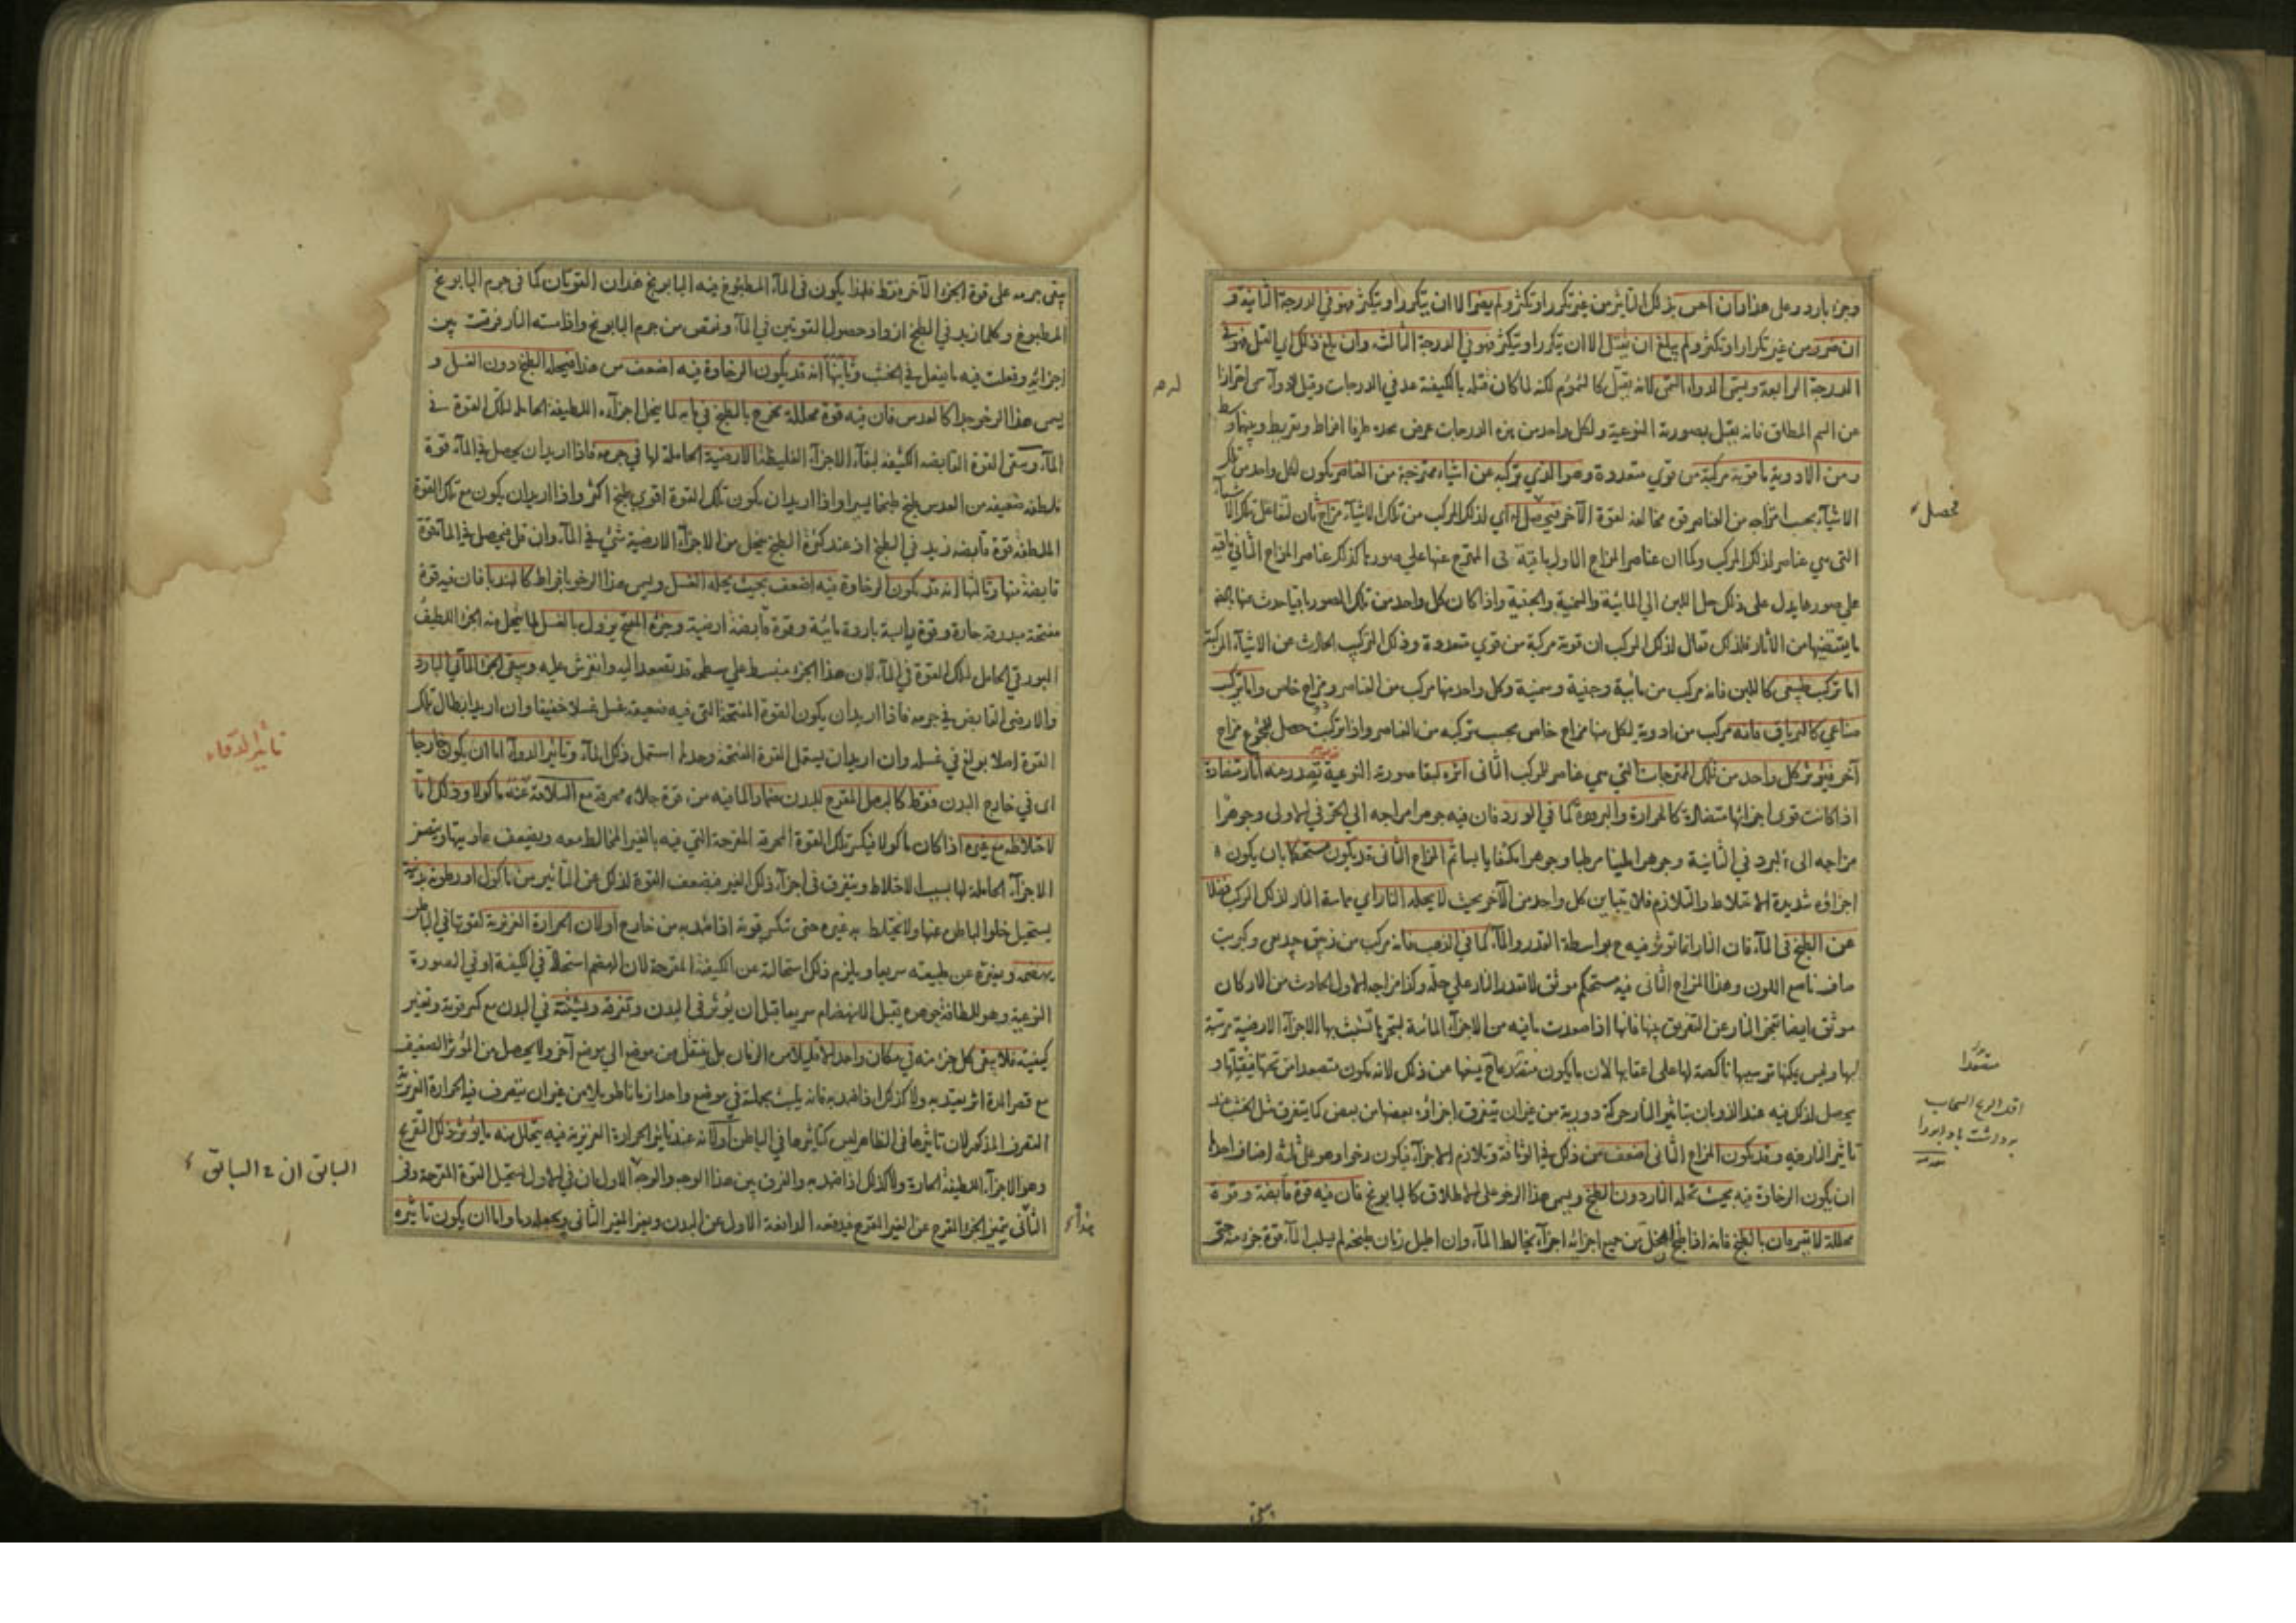 وجزء بارد وعلى هذا وان احس بذلك التاثير من غير تكرر او تكثر ولم يضر الا ان يتكرر او يتكثر فهو في الدرجة الثانية و
ان ضرر من غير تكرار او تكثر ولم يبلغ ان يقتل الا ان يتكرر او يتكثر فهو في الدرجة الثالثة وان بلغ ذلك اي القتل فهو في
الدرجة الرابعة ويسمى الدواء السمى لانه يقتل كالسموم لكنه لما كان قتله بالكيفية عد في الدرجات وقيل لدوآء سمى احترازا
عن السم المطلق فانه يقتل بصورته النوعية ولكل واحد من هذه الدرجات عرض يحده طرفا افراط وتفريط وبينهما وسط
ومن الادوية ما قوته مركبة من قوي متعددة وهو الذي تركبه عن اشياء ممتزجة من العناصر يكون لكل واحد من تلك
الاشيآء بحسب امتزاجه من العناصر قوة مخالفة لقوة الآخر فيحصل له اي لذلك المركب من تلك الاشيآء مزاج ثان لتفاعل تلك الاشيآء
التى هي عناصر لذلك المركب وكما ان عناصر المزاج الاول باقية فى الممتزج عنها على صورها كذلك عناصر المزاج الثاني باقية
على صورها يدل على ذلك حل اللبن الي المائية والسمنية والجبنية واذا كان كل واحد من تلك الصور باقيا حدث عنها بعض
ما يقتضيها من الآثار فلذلك تقال لذلك المركب ان قوته مركبة من قوي متعددة وذلك التركيب الحادث عن الاشيآء المركبة
اما تركب طبيعى كاللبن فانه مركب من مائية وجبنية وسمنية وكل واحد منها مركب من العناصر ومزاج خاص واما تركب
صناعي كالترياق فانه مركب من ادوية لكل منها مزاج خاص بحسب تركبه من العناصر واذا تركبت حصل للمجموع مزاج
آخر فيؤثر كل واحد من تلك الممتزجات التي هي عناصر للمركب الثانى اثره لبقاء صورته النوعية فيصدر منه آثار متضادة
اذا كانت قوى اجزائها متضادة كالحرارة والبرودة كما في الورد فان فيه جوهرا مزاجه الي الحر في الاولى وجوهرا
مزاجه الى البرد في الثانية وجوهرا لطيفا مرطبا وجوهرا مكثفا يابسا ثم المزاج الثانى قد يكون مستحكما بان يكون
اجزاؤه شديدة الاختلاط والتلازم فلا يتباين كل واحد من الآخر بحيث لا يحله النار اي مماسة النار لذلك المركب فضلا
عن الطبخ فى المآء فان النار انما تؤثر فيه ح بواسطة القدر والمآء كما في الذهب فانه مركب من زيبق جيد نقى وكبريت
صاف ناصع اللون وهذا المزاج الثانى فيه مستحكم موثق لا تقدر النار على حله وكذا مزاجه الاول الحادث من الاركان
موثق ايضا تعجز النار عن التفريق بينها فانها اذا صعدت مافيه من الاجزآء المائية لتبخرها تشبث بها الاجزآء الارضية مرسبة
لها وليس يمكنها ترسيبها ناكصة لها على اعقابها لان ما يكون منعقدا ح يمنعها عن ذلك لانه يكون متصعدا من تحتها فيقلها و
يحصل لذلك فيه عند الذوبان بتاثير النار حركة دورية من غير ان يتفرق اجزاؤه بعضها من بعض كما يتفرق مثل الخشب عند
تاثير النار فيه وقد يكون المزاج الثانى اضعف من ذلك في الوثاقة وتلازم الاجزآء فيكون رخوا وهو على ثلثة اصناف احدها
ان يكون الرخاوة فيه بحيث تحله النار دون الطبخ ويسمى هذا الرخو على الاطلاق كالبابونج فان فيه قوة قابضة وقوة
محللة لا يتفرقان بالطبخ فانه اذا طبخ انحل من جميع اجزائه اجزآء يخالط المآء وان اطيل زمان طبخه لم يسلب المآء قوة جزء منه حتى
فيحصل
متعددا
اقلت الريح السحاب
برداشت باد ابر را
يبقى
يبقى جرمه على قوة الجزء الآخر فقط فلهذا يكون فى المآء المطبوخ فيه البابونج هذان القوتان كما في جرم البابونج
المطبوخ وكلما زيد في الطبخ ازداد حصول القوتين في المآء ونقص من جرم البابونج واذا مسته النار فرقت بين
اجزائه وفعلت فيه ما يفعل في الخشب وثانيها انه قد يكون الرخاوة فيه اضعف من هذا فيحله الطبخ دون الغسل و
يسمى هذا الرخو جدا كالعدس فان فيه قوة محللة تخرج بالطبخ في مائه لما ينحل اجزآءه اللطيفة الحاملة لتلك القوة في
المآء ويبقى القوة القابضة الكثيفة لبقآء الاجزآء الغليظة الارضية الحاملة لها في جرمه فاذا اريد ان يحصل في المآء قوة
ملطفة ضعيفة من العدس يطبخ طبخا يسيرا واذا اريد ان يكون تلك القوة اقوى يطبخ اكثر واذا اريد ان يكون مع تلك القوة
الملطفة قوة قابضة زيد في الطبخ اذ عند كثرة الطبخ ينحل من الاجزآء الارضية شئ في المآء وان قل فيحصل في المآء قوة
قابضة منها وثالثها انه قد يكون الرخاوة فيه اضعف بحيث يحله الغسل ويسمى هذا الرخو بافراط كالهندبا فان فيه قوة
مفتحة مبدرقة حارة وقوة مائية باردة مائية وقوة قابضة ارضية وجزء المفتح يزول بالغسل لما ينحل منه الجزء اللطيف
البورقي الحامل لتلك القوة في المآء لان هذا الجزء منبسط على سطحه قد تصعد اليه وانفرش عليه ويبقى الجزء المائي البارد
والارضى القابض في جرمه فاذا اريد ان يكون القوة المفتحة التى فيه ضعيفة غسل غسلا خفيفا وان اريد ابطال تلك
القوة اصلا بولغ في غسله وان اريد ان يستعمل القوة المفتحة وحدها استعمل ذلك المآء وتاثير الدوآء اما ان يكون خارجا
اى في خارج البدن فقط كالبصل المقرح للبدن ضمادا لما فيه من قوة جلاءه محرقة مع السلامة عنه ماكولا وذلك اما
لاختلاطه مع غيره اذا كان ماكولا فينكسر تلك القوة المحرقة المقرحة التي فيه بالغير المخالط معه ويضعف عاديتها ويتصغر
الاجزآء الحاملة لها بسبب الاختلاط ويتفرق فى اجزآء ذلك الغير فيضعف القوة لذلك عن التاثير من ماكول او رطوبة بدنية
يستحيل خلو الباطن عنها ولا يختلط به غيره حتى تنكسر قوته اذا ضمد به من خارج او لان الحرارة الغريزية لقوتها في الباطن
يهضمه ويغيره عن طبيعته سريعا ويلزم ذلك استحالته عن الكيفية المقرحة لان الهضم استحالة في الكيفية او في الصورة
النوعية وهو للطافة جوهره يقبل الانهضام سريعا قبل ان يؤثر في البدن وتفرقه وتشتته في البدن مع كسر قوته وتغير
كيفيته فلا يبقى كل جزء منه في مكان واحد الا قليلا من الزمان بل ينتقل من موضع الى موضع آخر ولا يحصل من المؤثر الضعيف
مع قصر المدة اثر يعتد به ولا كذلك اذا ضمد به فانه يلبث بجملته في موضع واحد زمانا طويلا من غير ان يتصرف فيه الحرارة الغريزية
التصرف المذكور لان تاثيرها فى الظاهر ليس كتاثيرها في الباطن او لانه عند تاثير الحرارة الغريزية فيه يتحلل منه ما يؤثر ذلك التقريح
وهو الاجزآء اللطيفة الحارة ولا كذلك اذا ضمد به والفرق بين هذا الوجه والوجه الاول ان في الاول يستحيل القوة المقرحة وفى
الثاني يتميز الجزء المقرح عن الغير المقرح فيدفعه الدافعة الاول عن البدن ويغير المغير الثانى ويجعله دما واما ان يكون تاثيره
تاثير الدواء
السابق ان في السابق